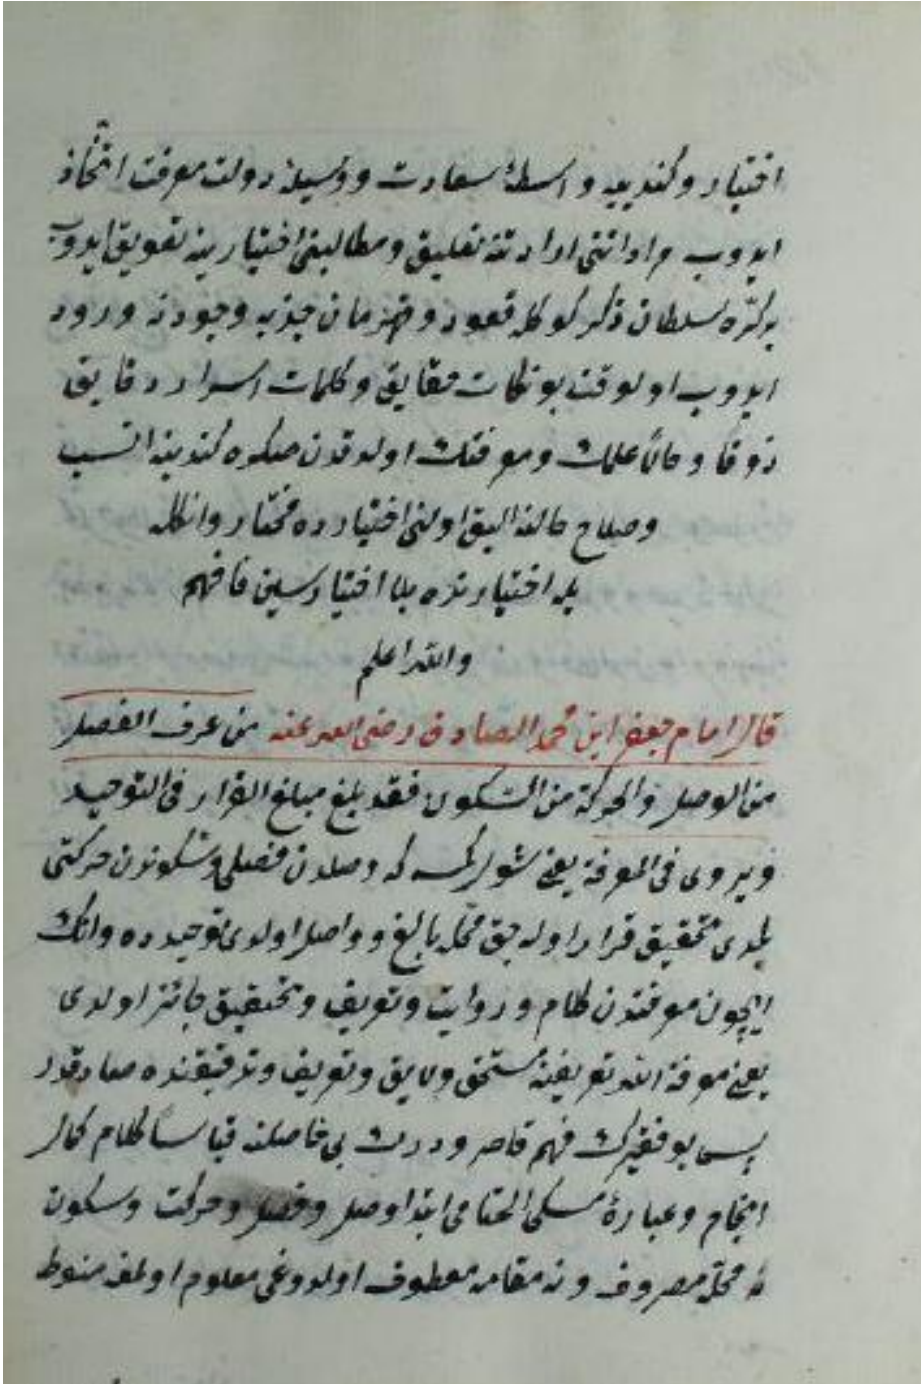 اختیار و کندییه واسطهٔ سعادت و وسیلهٔ دولت معرفت اتّخاذ
ایدوب مراداتنی ارادتنه تعلیق و مطالبنی اختیارینه تفویق ایدوب
سلطان ذکر کوکله قعود و قهرمان جذبه وجودنه ورود
ایدوب اولوقت بو نکات حقایق و کلمات اسرار دقایق
ذوقا و حالاً علمك و معرفتك اولدقدن صکره کندینه انسب
و صلاح حالنه الیق اولنی اختیارده مختار و انکله
بله اختیارنده بلا اختیارسین فافهم
والله اعلم
قال امام جعفر ابن محمد الصادق رضی الله عنه من عرف الفصل
من الوصل والحرکة من السّکون فقد بلغ مبلغ القرار فی التوحید
ویروی فی المعرفة یعنی شول کمسه که وصلدن فصلی و سکوندن حرکتی
بلدی تحقیق قرار اوله جق محلّه بالغ و واصل اولدی توحیدده و انك
ایچون معرفتدن کلام و روایت و تعریف و تحقیق جائز اولدی
یعنی معرفة الله تعریفنه مستحق و لایق و تعریف و تدقیقنده صادقدر
پس بو فقیرك فهم قاصر و درك بی حاصلنه قیاساً کلام کمال
انجام و عبارهٔ مسکی الختامی ابتدا وصل و فصل و حرکت و سکون
نه محلّه مصروف و نه مقامه معطوف اولدوغی معلوم اولمغه منوط